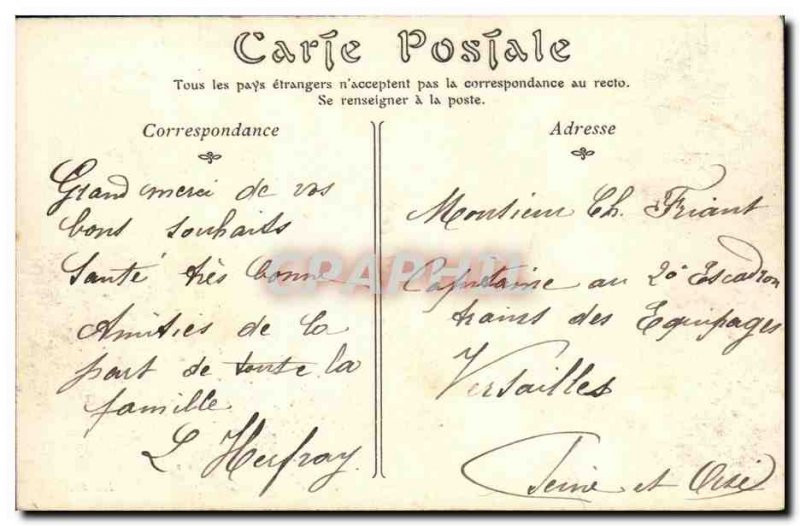 Carte Postale
Tous les pays étrangers n'acceptent pas la correspondance au recto.
Se renseigner à la poste.
Correspondance
Grand merci de vos
bons souhaits
Santé très bonne
Amitiés de la
part de toute la
famille
L Herfray
Adresse
Monsieur Ch. Friant
Capitaine au 20e Escadron
trains des Equipages
Versailles
Seine et Oise
CPAPHIL